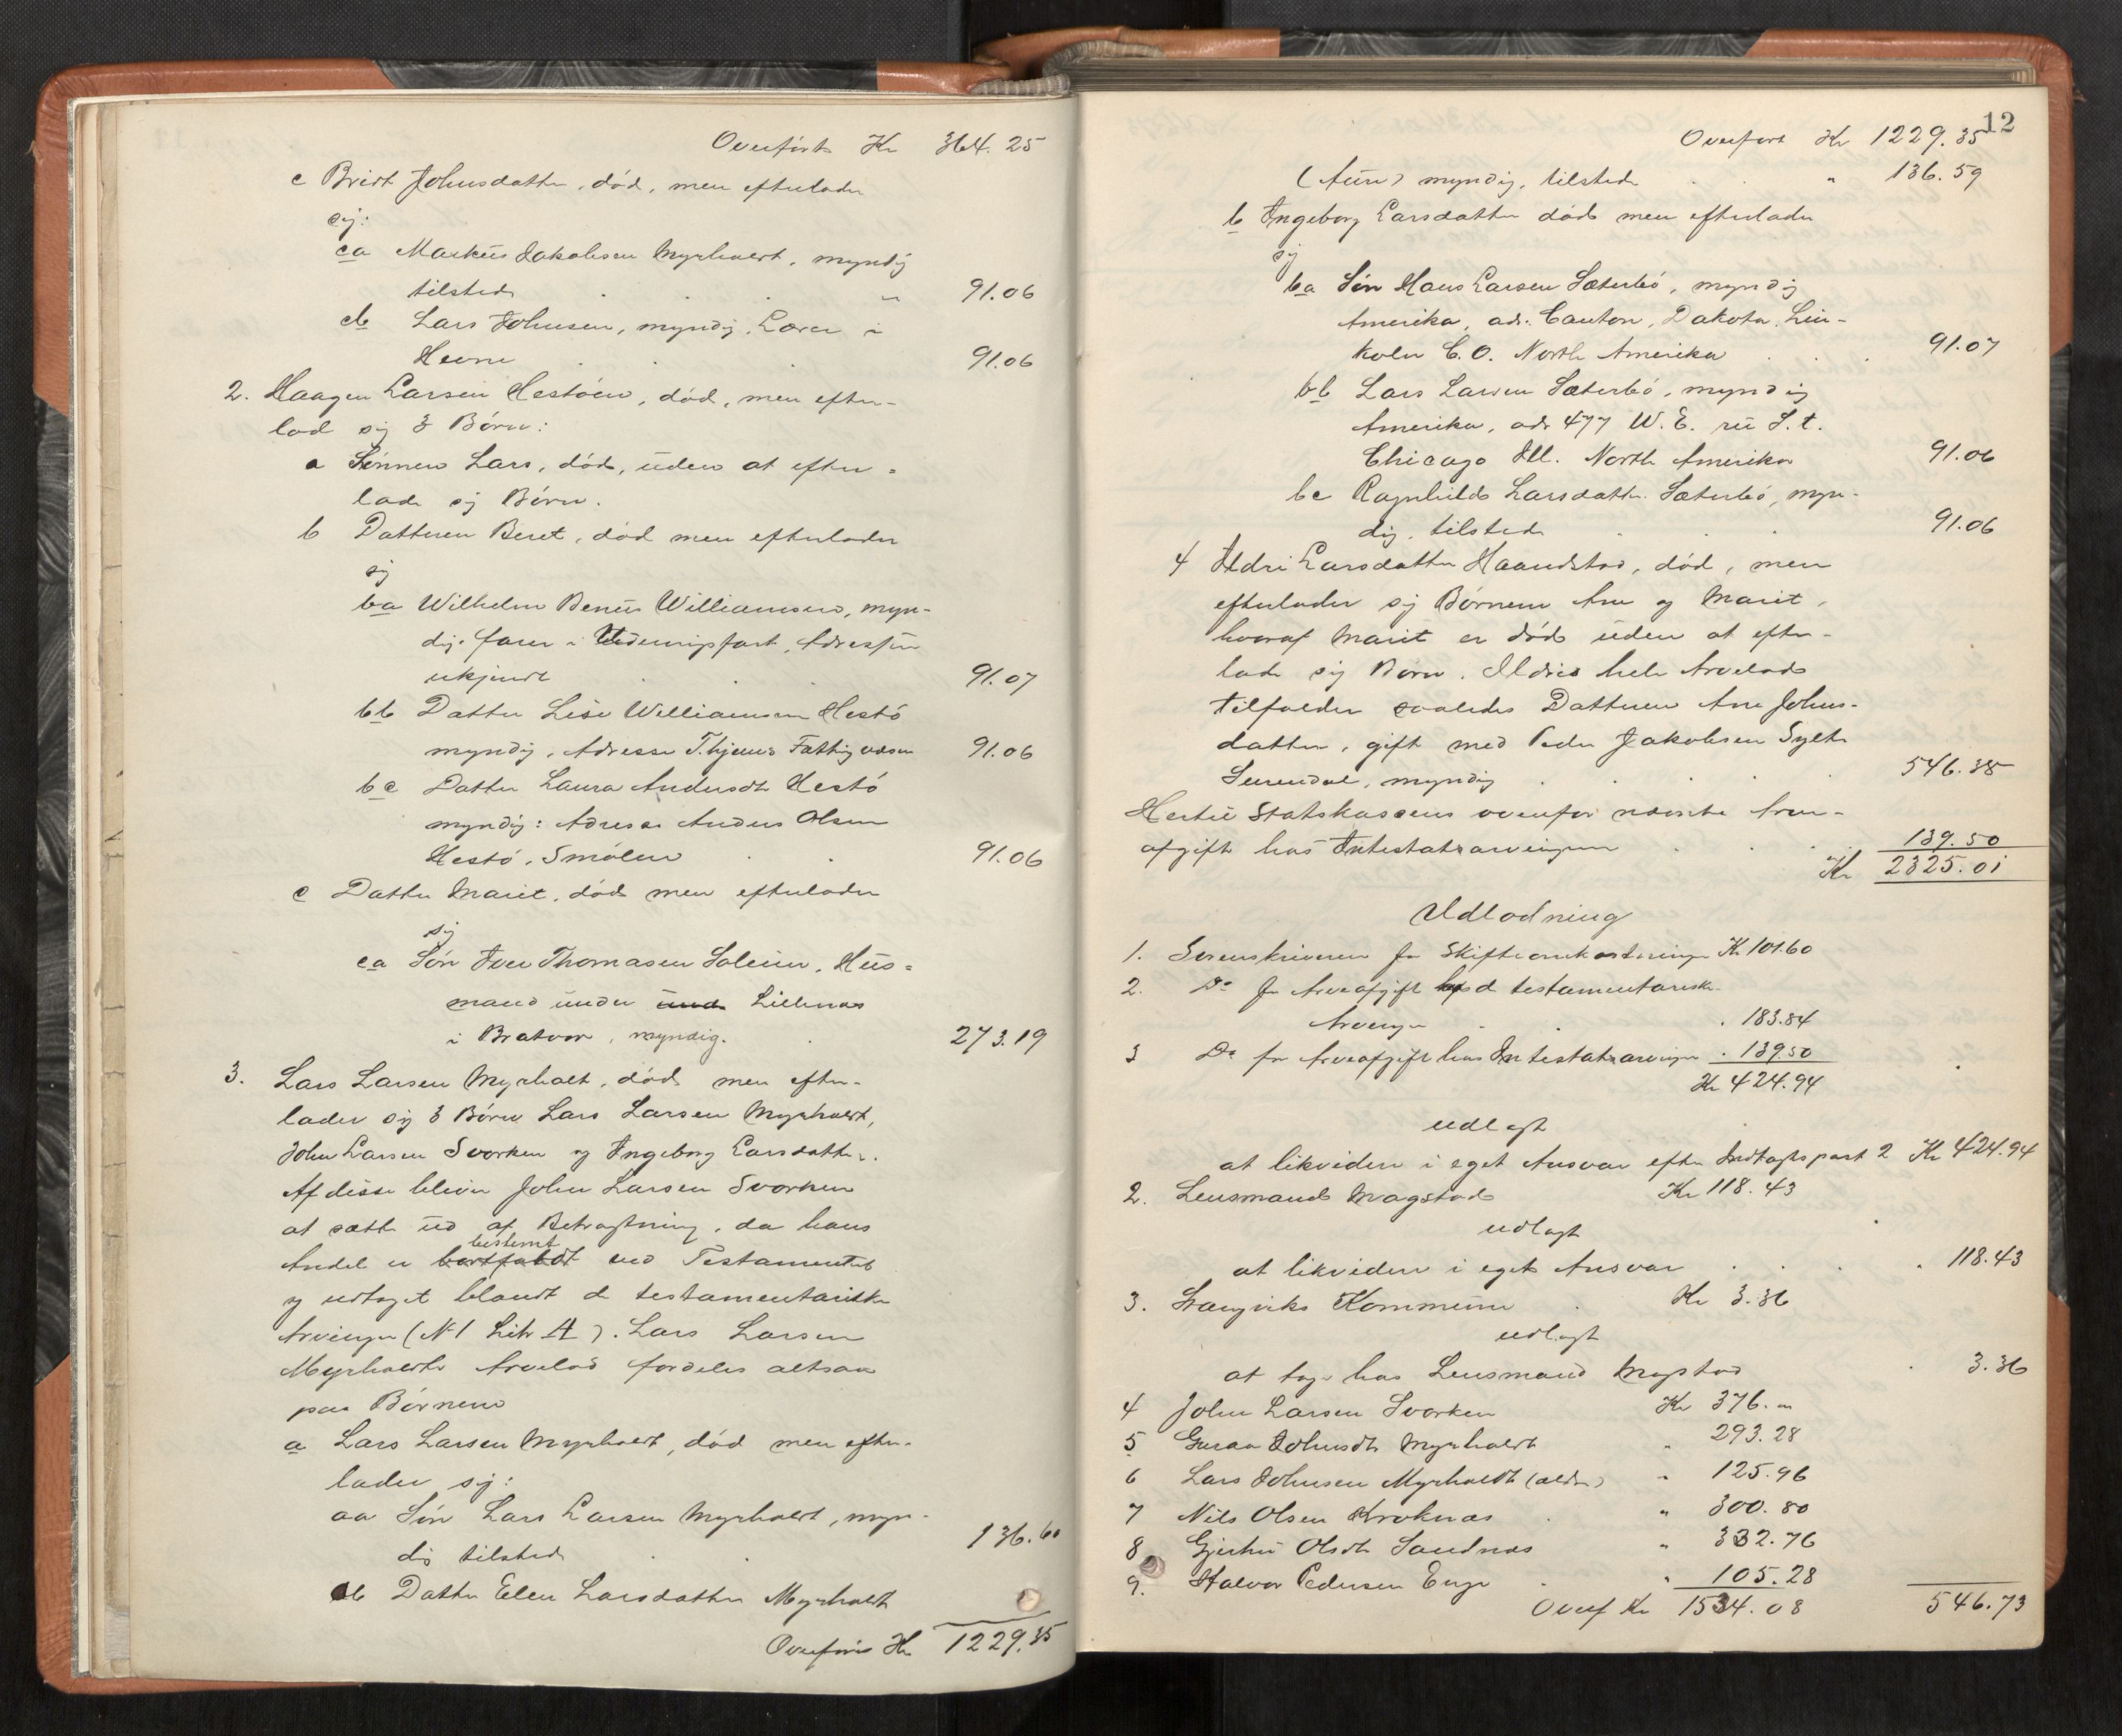 Overført Kr 364.25
c Brict Johnsdatter, død, men efterlader
sig:
ca Markus Jakobsen Myrholdt, myndig
tilstede . . . " 91.06
cb Lars Johnsen, myndig, Lærer i
Hevne . . 91.06
2. Haagen Larsen Hestøen, død, men efter-
lod sig 3 Børn:
a Sønnen Lars, død, uden at efter-
lade sig Børn.
b Datteren Beret, død men efterlader
sig
ba Wilhelm Benus Williamsen, myn-
dig. farer i Udenrigsfart, Adressen
ukjendt . . 91.07
bb Datter Lise Williamsen Hestø
myndig, Adresse T.hjems Fattigvæsen 91.06
bc Datter Laura Andersdt Hestø
myndig: Adresse Anders Olsen
Hestø, Smølen . . 91.06
c Datter Marit, død men efterlader
sig
ca Søn Iver Thomasen Soleim, Hus-
mand under und Lillenes
i Bratvær, myndig. . 273.19
3. Lars Larsen Myrholt, død men efter-
lader sig 3 Børn Lars Larsen Myrholdt,
John Larsen Svorken og Ingeborg Larsdatter.
Af disse bliver John Larsen Svorken
at sætte ud af Betragtning, da hans
bestemt
Andel er bortfaldt ved Testamentet
og udtaget blandt de testamentariske
Arvinger (No 1 Litr A). Lars Larsen
Myrholdts Arvelod fordeles altsaa
paa Børnene
a Lars Larsen Myrholdt, død men efter-
lader sig:
aa Søn Lars Larsen Myrholdt, myn-
dig tilstede . . 136.60
ab Datter Elen Larsdatter Myrholdt
Overføres Kr 1229.35
12
Overført Kr 1229.35
(Aure) myndig, tilstede . " 136.59
b Ingeborg Larsdatter død men efterlader
sig
ba Søn Hans Larsen Sæterbø, myndig
Amerika, adr. Canton, Dakota, Lin-
koln C.O. North Amerika . . . 91.07
bb Lars Larsen Sæterbø, myndig
Amerika, adr 477 W. E. ru S.t.
Chicago Ill. North Amerika 91.06
bc Ragnhild Larsdatter Sæterbø, myn-
dig, tilstede . . . 91.06
4 Ildri Larsdatter Haandstad, død, men
efterlader sig Børnene Ane og Marit,
hvoraf Marit er død uden at efter-
lade sig Børn. Ildris hele Arvelod
tilfalder saaledes Datteren Ane Johns-
datter, gift med Peder Jakobsen Sylte
Surendal, myndig . . . . 546.38
Hertil Statskassens ovenfor nævnte Arve-
afgift hos Intestatsarvingerne . . . 139.50
Kr 2325.01
Udlodning
1. Sorenskriveren for Skifteomkostninger Kr 101.60
2. Do for Arveafgift hos d testamentariske
Arvinger . . . 183.84
3 Do for Arveafgift hos Intestatsarvinger . 139.50
Kr 424.94
udlagt
at likvidere i eget Ansvar efter Indtægtspost 2 Kr 424.94
2. Lensmand Magstad Kr 118.43
udlagt
at likvidere i eget Ansvar . . . . 118.43
3. Stangviks Kommune . Kr 3.36
udlagt
at tage hos Lensmand Magstad . 3.36
4 John Larsen Svorken Kr 376. "
5 Guraa Johnsdt Myrholdt " 293.28
6 Lars Johnsen Myrholdt (ældre) " 125.96
7 Nils Olsen Kroknes . " 300.80
8 Gjertru Olsdt Sandnes " 332.76
9. Halvor Pedersen Enge . " 105.28
Overf Kr 1534.08 546.73